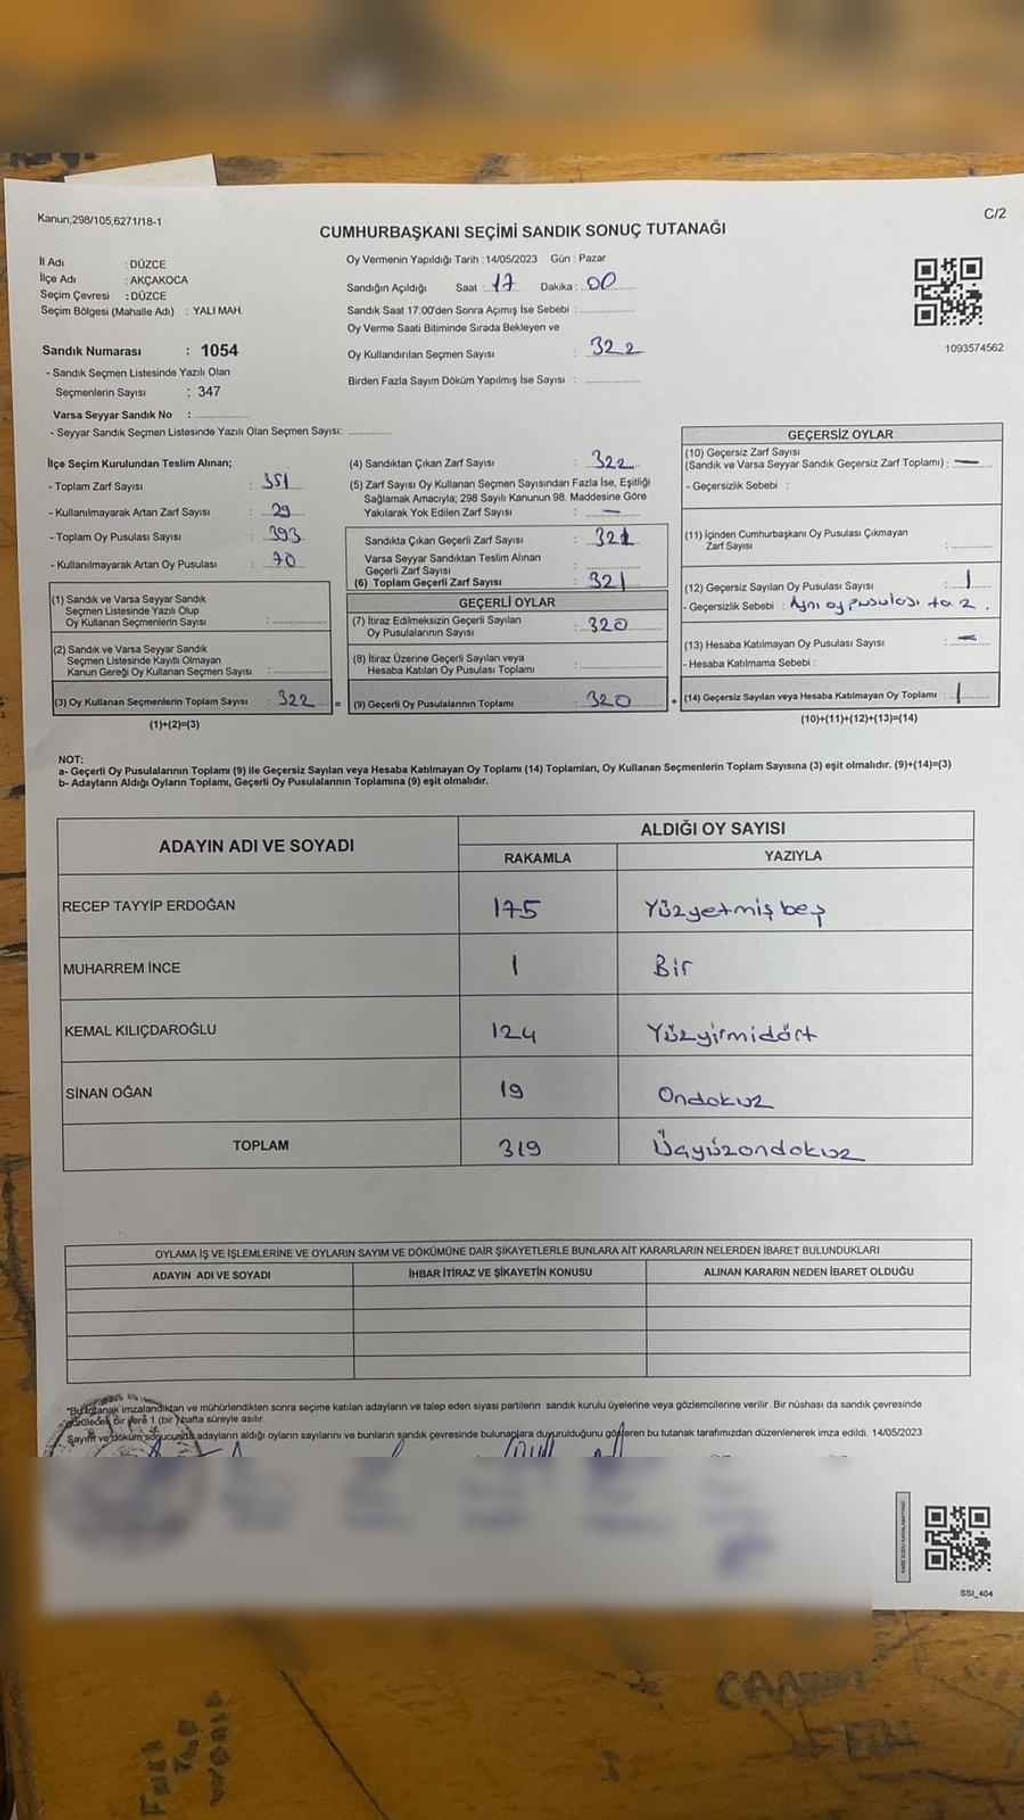 Kanun,298/105,6271/18-1
C/2
CUMHURBAŞKANI SEÇİMİ SANDIK SONUÇ TUTANAĞI
İl Adı : DÜZCE
İlçe Adı : AKÇAKOCA
Seçim Çevresi : DÜZCE
Seçim Bölgesi (Mahalle Adı) : YALI MAH.
Sandık Numarası : 1054
- Sandık Seçmen Listesinde Yazılı Olan
Seçmenlerin Sayısı : 347
Varsa Seyyar Sandık No :
- Seyyar Sandık Seçmen Listesinde Yazılı Olan Seçmen Sayısı:
Oy Vermenin Yapıldığı Tarih :14/05/2023 Gün : Pazar
Sandığın Açıldığı Saat : 17 Dakika : 00
Sandık Saat 17:00'den Sonra Açmış İse Sebebi :
Oy Verme Saati Bitiminde Sırada Bekleyen ve
Oy Kullandırılan Seçmen Sayısı : 322
Birden Fazla Sayım Döküm Yapılmış İse Sayısı :
1093574562
İlçe Seçim Kurulundan Teslim Alınan;
- Toplam Zarf Sayısı : 351
- Kullanılmayarak Artan Zarf Sayısı : 29
- Toplam Oy Pusulası Sayısı : 393
- Kullanılmayarak Artan Oy Pusulası : 70
(1) Sandık ve Varsa Seyyar Sandık
Seçmen Listesinde Yazılı Olup
Oy Kullanan Seçmenlerin Sayısı :
(2) Sandık ve Varsa Seyyar Sandık
Seçmen Listesinde Kayıtlı Olmayan
Kanun Gereği Oy Kullanan Seçmen Sayısı :
(3) Oy Kullanan Seçmenlerin Toplam Sayısı : 322
(1)+(2)=(3)
(4) Sandıktan Çıkan Zarf Sayısı : 322
(5) Zarf Sayısı Oy Kullanan Seçmen Sayısından Fazla İse, Eşitliği
Sağlamak Amacıyla; 298 Sayılı Kanunun 98. Maddesine Göre
Yakılarak Yok Edilen Zarf Sayısı : —
Sandıkta Çıkan Geçerli Zarf Sayısı : 321
Varsa Seyyar Sandıktan Teslim Alınan
Geçerli Zarf Sayısı
(6) Toplam Geçerli Zarf Sayısı : 321
GEÇERLİ OYLAR
(7) İtiraz Edilmeksizin Geçerli Sayılan
Oy Pusulalarının Sayısı : 320
(8) İtiraz Üzerine Geçerli Sayılan veya
Hesaba Katılan Oy Pusulası Toplamı :
= (9) Geçerli Oy Pusulalarının Toplamı : 320
GEÇERSİZ OYLAR
(10) Geçersiz Zarf Sayısı
(Sandık ve Varsa Seyyar Sandık Geçersiz Zarf Toplamı) : —
- Geçersizlik Sebebi :
(11) İçinden Cumhurbaşkanı Oy Pusulası Çıkmayan
Zarf Sayısı :
(12) Geçersiz Sayılan Oy Pusulası Sayısı : 1
- Geçersizlik Sebebi : Aynı oy pusulası ta 2.
(13) Hesaba Katılmayan Oy Pusulası Sayısı : —
- Hesaba Katılmama Sebebi :
+ (14) Geçersiz Sayılan veya Hesaba Katılmayan Oy Toplamı : 1
(10)+(11)+(12)+(13)=(14)
NOT:
a- Geçerli Oy Pusulalarının Toplamı (9) ile Geçersiz Sayılan veya Hesaba Katılmayan Oy Toplamı (14) Toplamları, Oy Kullanan Seçmenlerin Toplam Sayısına (3) eşit olmalıdır. (9)+(14)=(3)
b- Adayların Aldığı Oyların Toplamı, Geçerli Oy Pusulalarının Toplamına (9) eşit olmalıdır.
ADAYIN ADI VE SOYADI
ALDIĞI OY SAYISI
RAKAMLA YAZIYLA
RECEP TAYYİP ERDOĞAN 175 Yüzyetmişbeş
MUHARREM İNCE 1 Bir
KEMAL KILIÇDAROĞLU 124 Yüzyirmidört
SİNAN OĞAN 19 Ondokuz
TOPLAM 319 Üçyüzondokuz
OYLAMA İŞ VE İŞLEMLERİNE VE OYLARIN SAYIM VE DÖKÜMÜNE DAİR ŞİKAYETLERLE BUNLARA AİT KARARLARIN NELERDEN İBARET BULUNDUKLARI
ADAYIN ADI VE SOYADI İHBAR İTİRAZ VE ŞİKAYETİN KONUSU ALINAN KARARIN NEDEN İBARET OLDUĞU
"Bu tutanak imzalandıktan ve mühürlendikten sonra seçime katılan adayların ve talep eden siyasi partilerin sandık kurulu üyelerine veya gözlemcilerine verilir. Bir nüshası da sandık çevresinde
görülecek bir yere 1 (bir) hafta süreyle asılır.
Sayım ve döküm sonucunda adayların aldığı oyların sayılarını ve bunların sandık çevresinde bulunanlara duyurulduğunu gösteren bu tutanak tarafımızdan düzenlenerek imza edildi. 14/05/2023
SSI_404